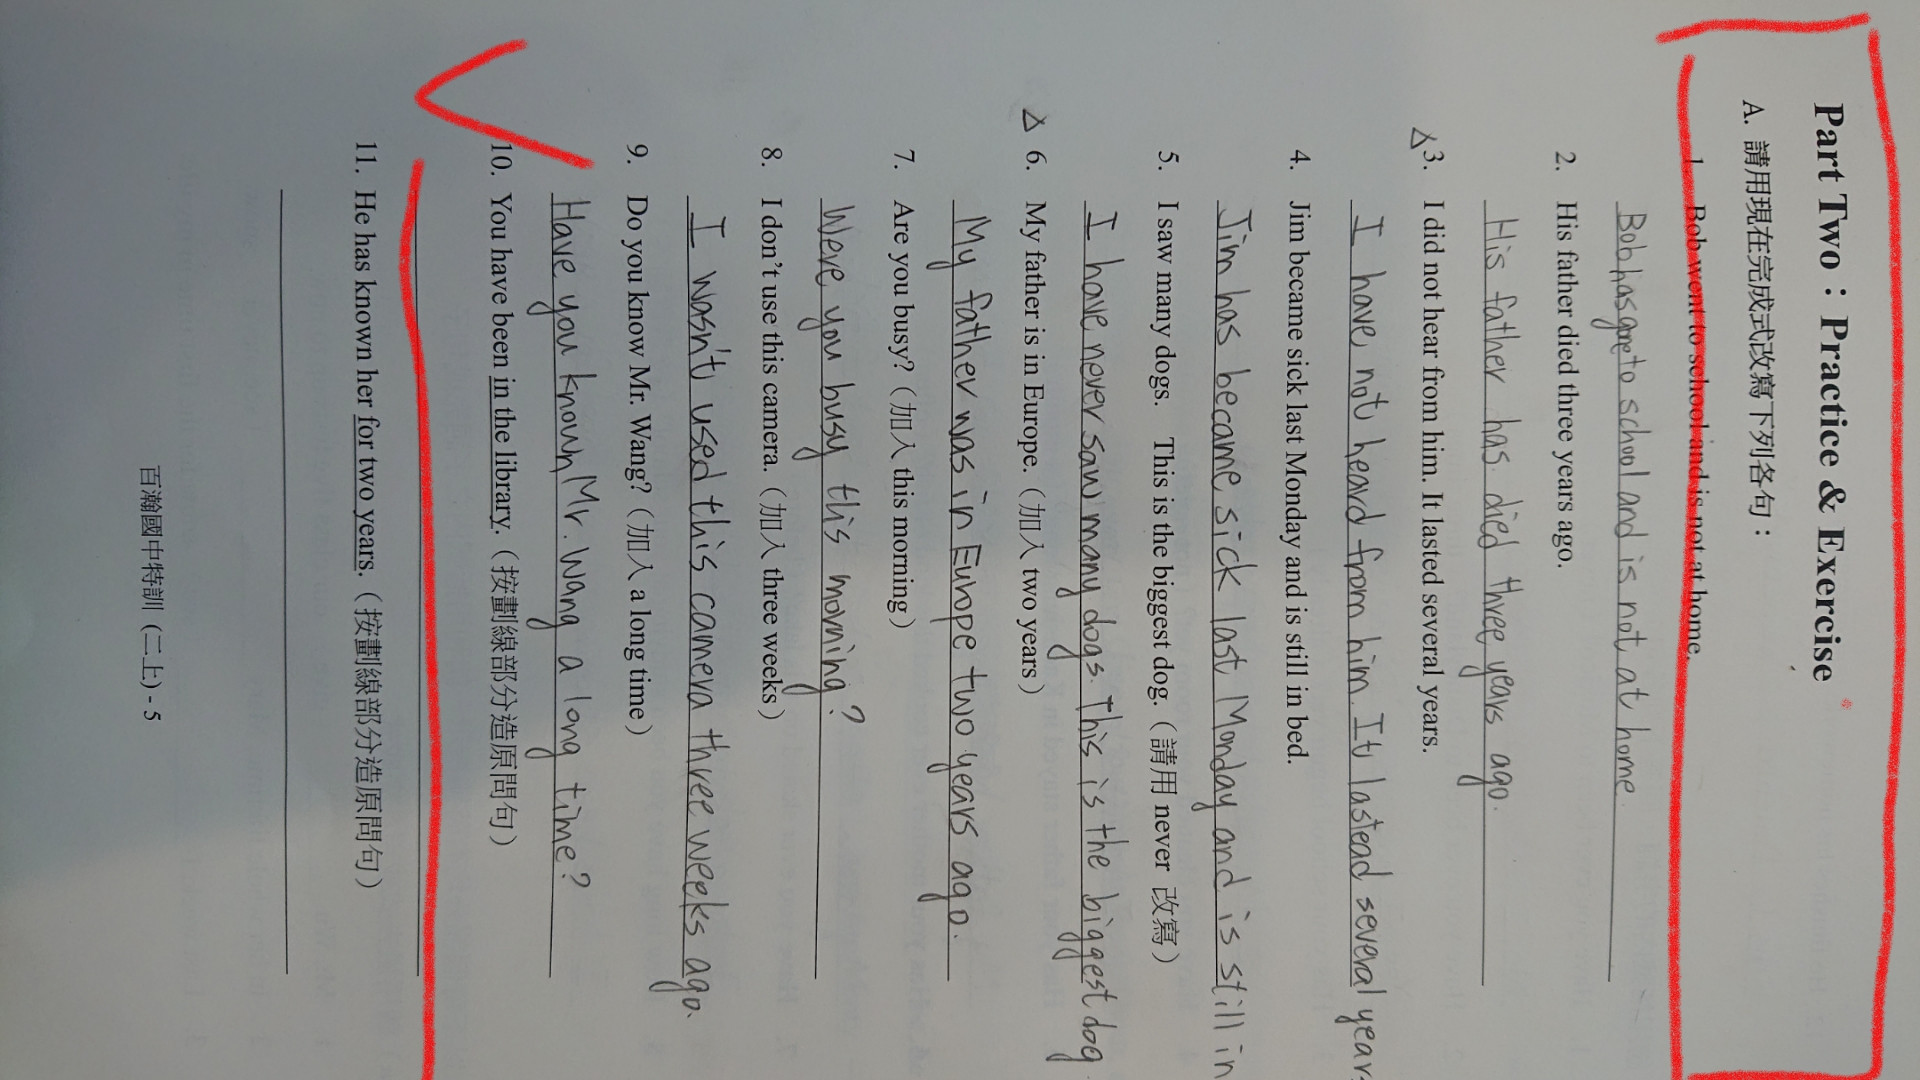 Part Two：Practice & Exercise
A. 請用現在完成式改寫下列各句：
1. Bob went to school and is not at home.
Bob has gone to school and is not at home.
2. His father died three years ago.
His father has died three years ago.
△3. I did not hear from him. It lasted several years.
I have not heard from him. It lastead several years
4. Jim became sick last Monday and is still in bed.
Jim has became sick last Monday and is still in
5. I saw many dogs. This is the biggest dog.（請用 never 改寫）
I have never saw many dogs. This is the biggest dog.
△ 6. My father is in Europe.（加入 two years）
My father was in Europe two years ago.
7. Are you busy?（加入 this morning）
Were you busy this morning?
8. I don't use this camera.（加入 three weeks）
I wasn't used this camera three weeks ago.
9. Do you know Mr. Wang?（加入 a long time）
Have you known Mr. Wang a long time?
10. You have been in the library.（按劃線部分造原問句）
11. He has known her for two years.（按劃線部分造原問句）
百瀚國中特訓 (二上) - 5